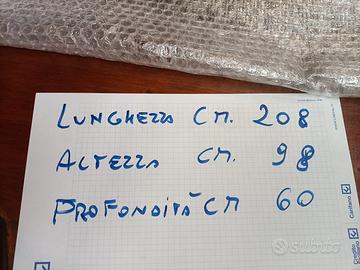 LUNGHEZZA CM. 208
ALTEZZA CM. 98
PROFONDITÀ CM 60
subito